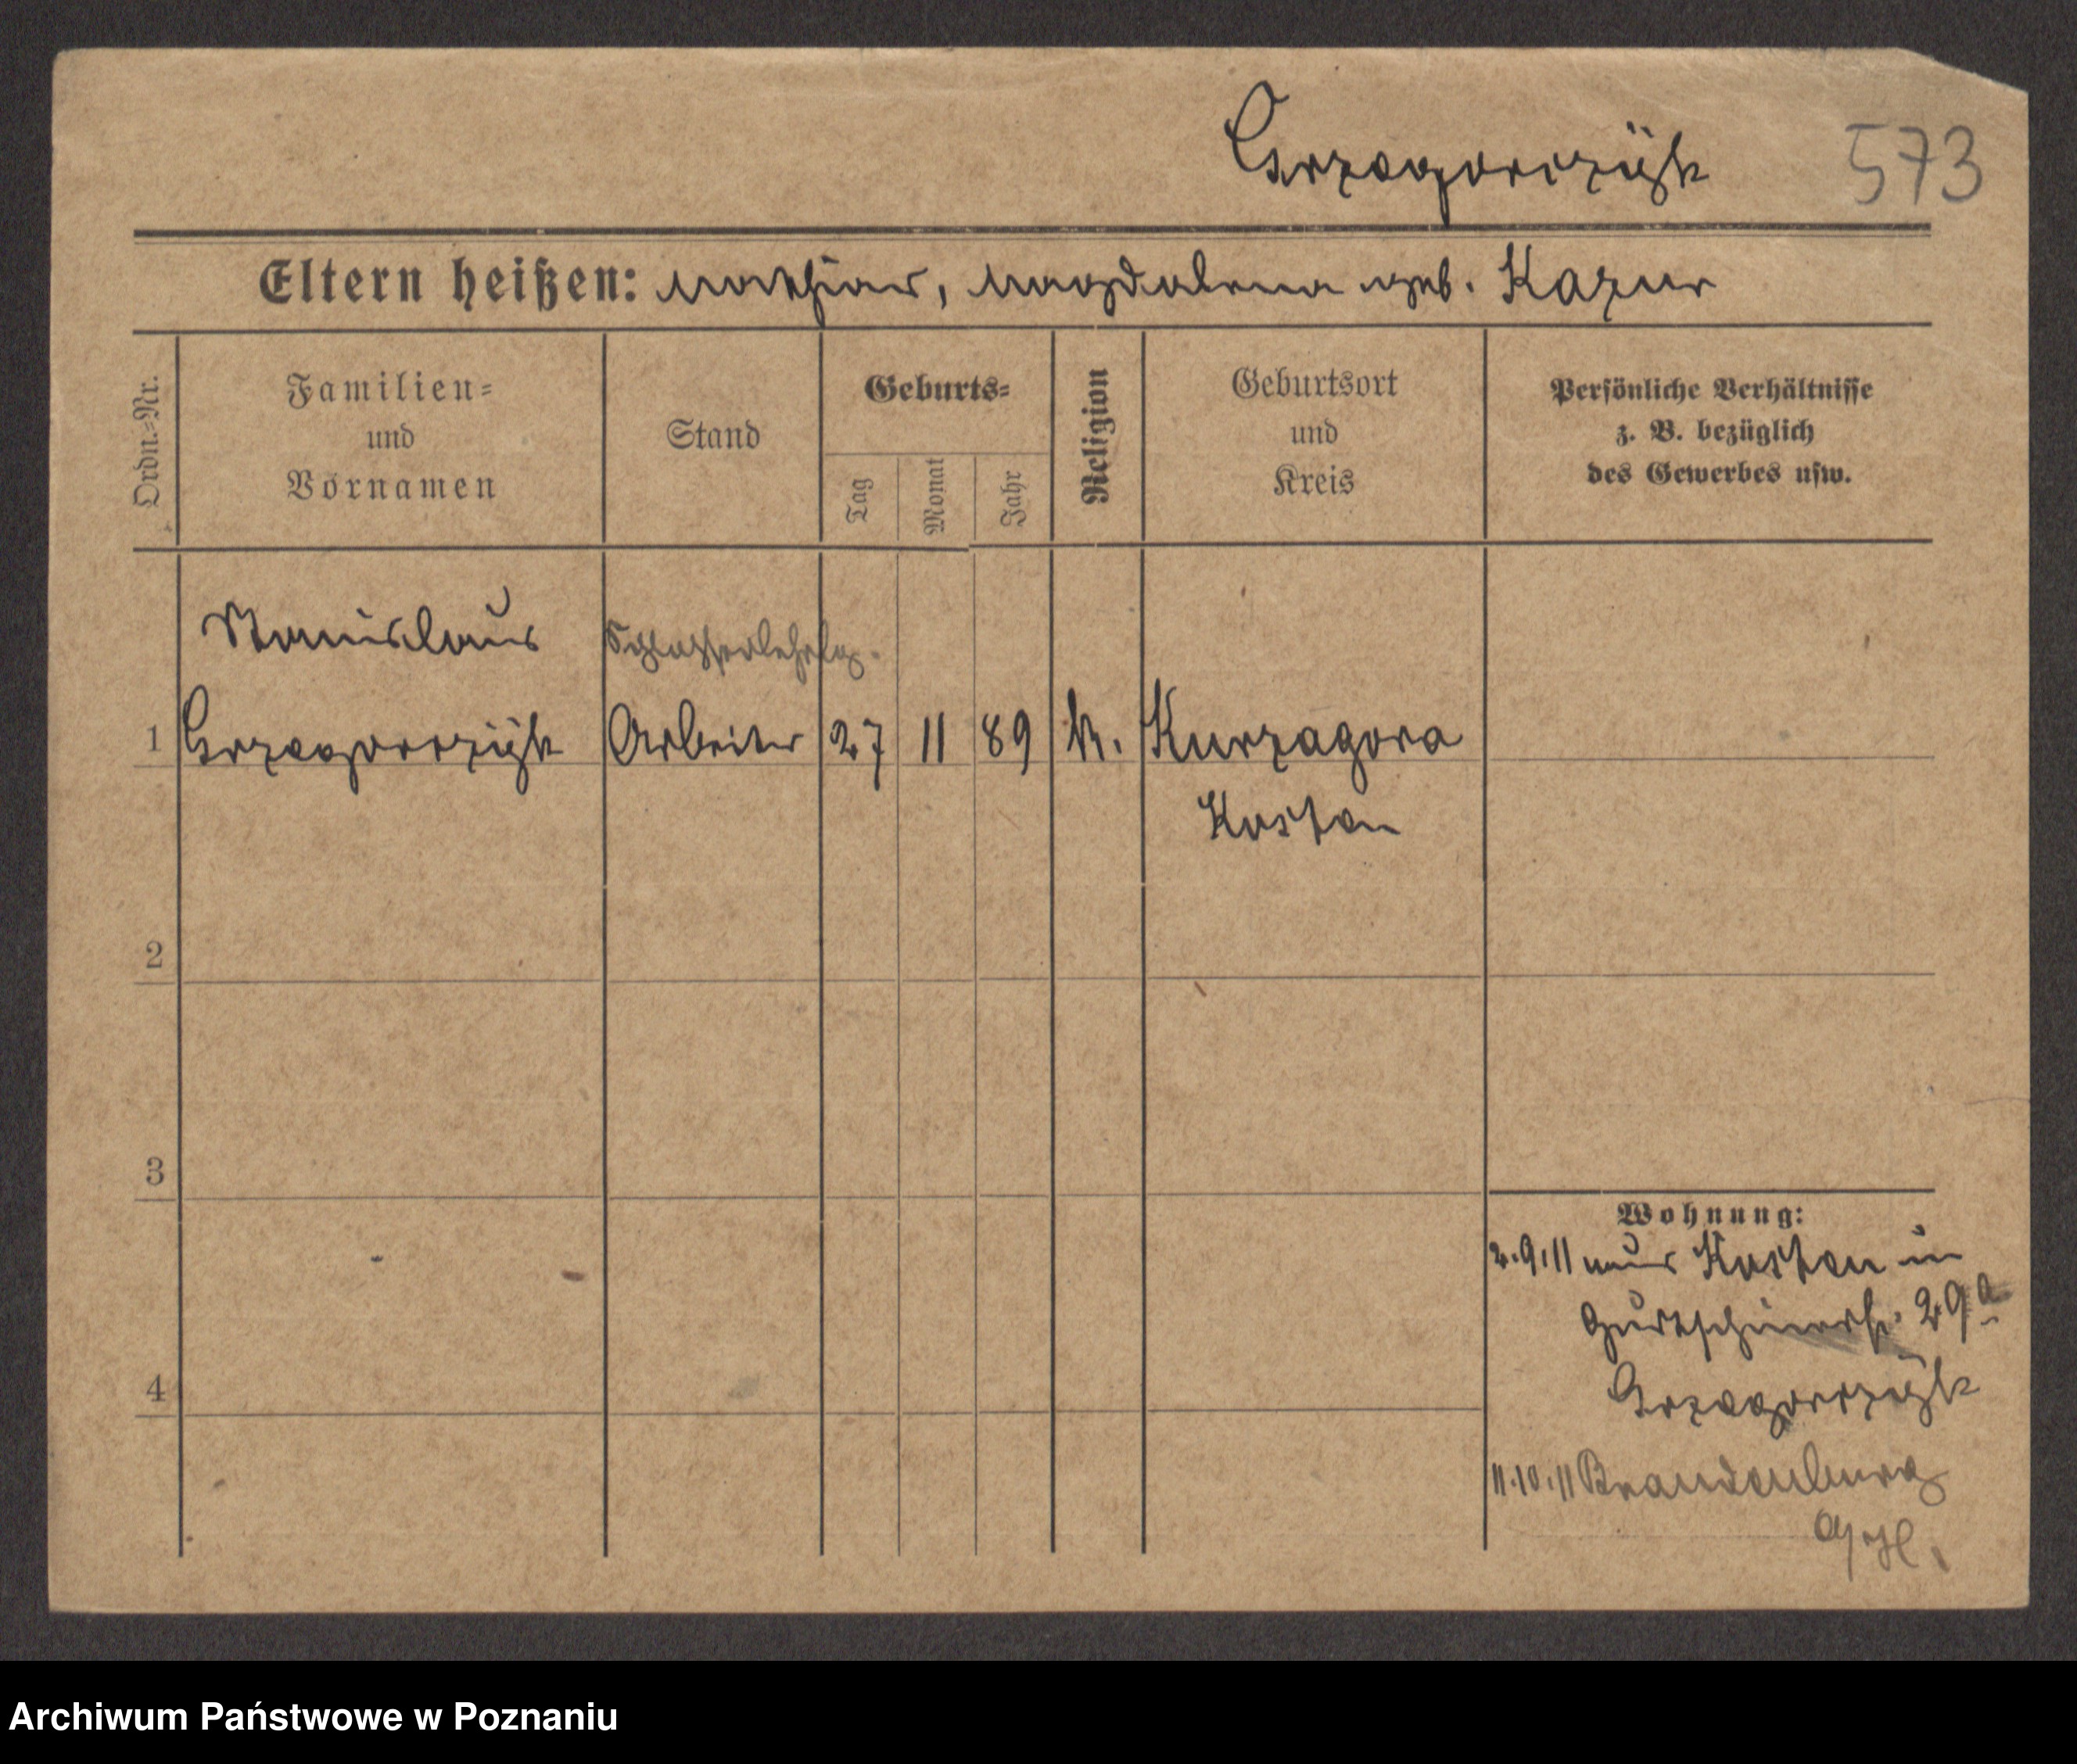 Grzegorczÿk 573
Eltern heißen: Mathias, Magdalena geb. Kazur
Ordn.-Nr.
Familien-
und
Vornamen
Stand
Geburts-
Tag
Monat
Jahr
Religion
Geburtsort
und
Kreis
Persönliche Verhältnisse
z. B. bezüglich
des Gewerbes usw.
Stanislaus Schlosserlehrlg.
1 Grzegorczÿk Arbeiter 27 11 89 k. Kurzagora
Kosten
2
3
4
Wohnung:
2.9.11 aus Kosten in
Gurtschinerstr. 29a
Grzegorczÿk
11.10.11 Brandenburg
a/H.
Archiwum Państwowe w Poznaniu